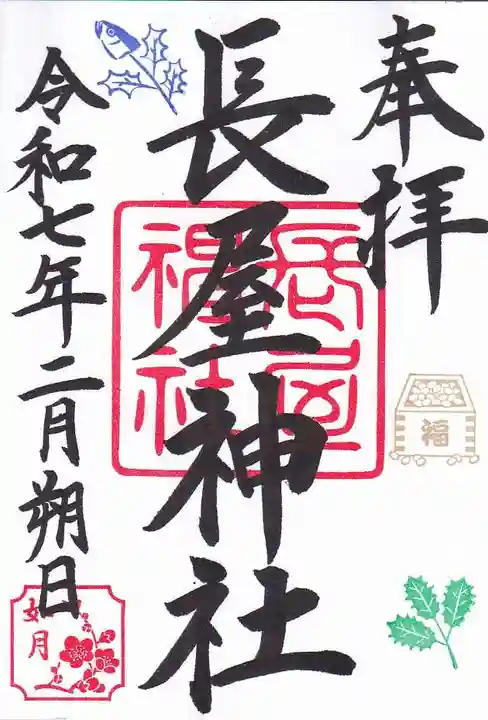 奉拝
長屋神社
令和七年二月朔日
長屋
神社
福
如月